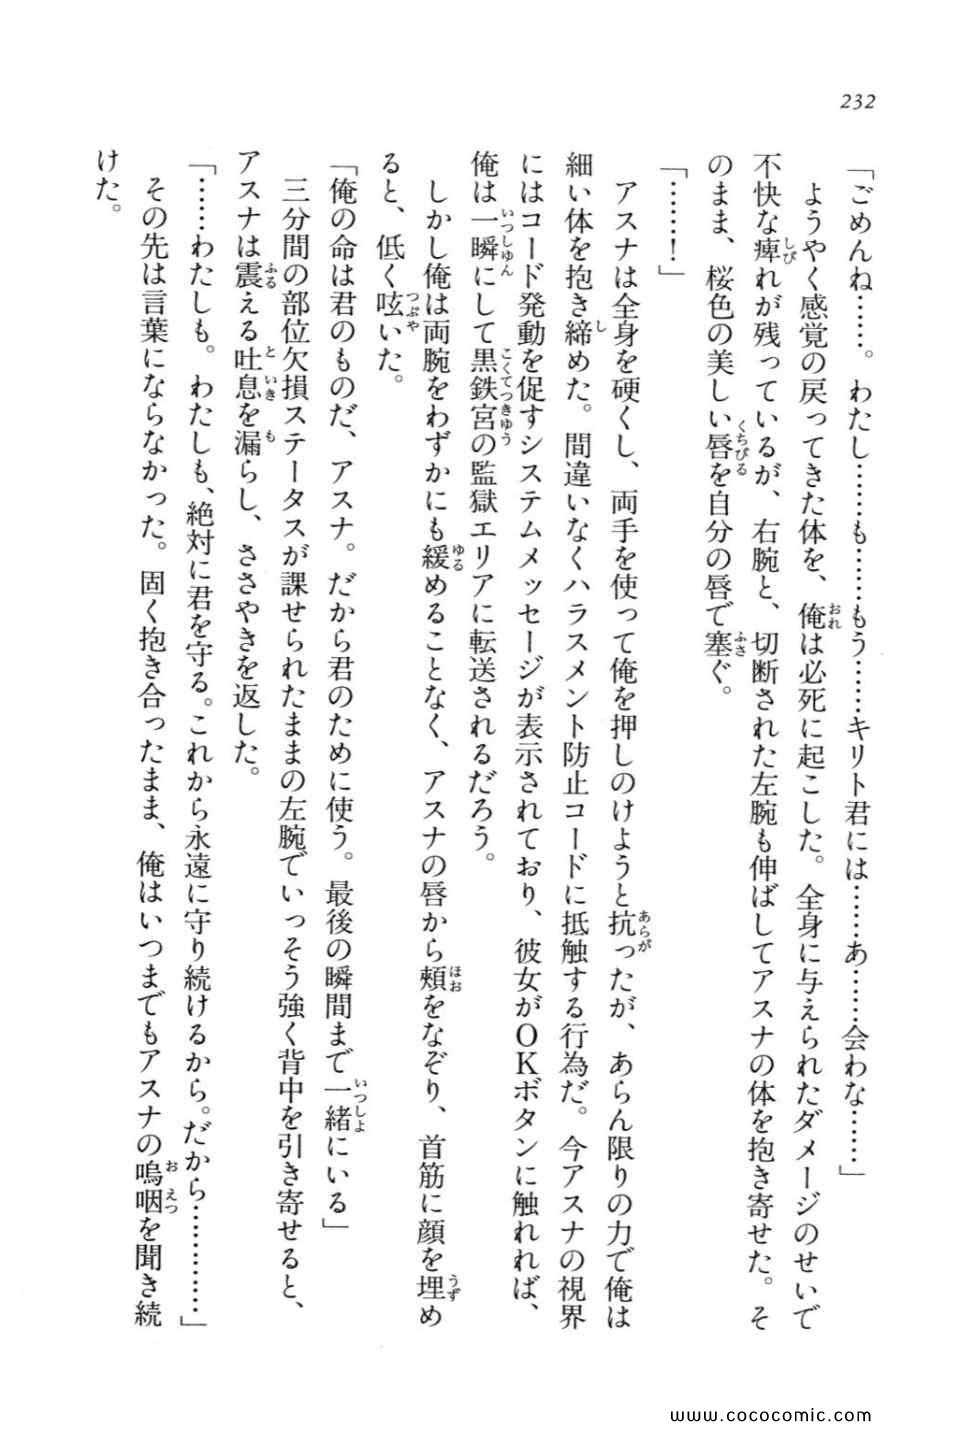 232
「ごめんね……。わたし……も……もう……キリト君には……あ……会わな……」
ようやく感覚の戻ってきた体を、俺は必死に起こした。全身に与えられたダメージのせいで
不快な痺れが残っているが、右腕と、切断された左腕も伸ばしてアスナの体を抱き寄せた。そ
のまま、桜色の美しい唇を自分の唇で塞ぐ。
「……！」
アスナは全身を硬くし、両手を使って俺を押しのけようと抗ったが、あらん限りの力で俺は
細い体を抱き締めた。間違いなくハラスメント防止コードに抵触する行為だ。今アスナの視界
にはコード発動を促すシステムメッセージが表示されており、彼女がOKボタンに触れれば、
俺は一瞬にして黒鉄宮の監獄エリアに転送されるだろう。
しかし俺は両腕をわずかにも緩めることなく、アスナの唇から頬をなぞり、首筋に顔を埋め
ると、低く呟いた。
「俺の命は君のものだ、アスナ。だから君のために使う。最後の瞬間まで一緒にいる」
三分間の部位欠損ステータスが課せられたままの左腕でいっそう強く背中を引き寄せると、
アスナは震える吐息を漏らし、ささやきを返した。
「……わたしも。わたしも、絶対に君を守る。これから永遠に守り続けるから。だから…………」
その先は言葉にならなかった。固く抱き合ったまま、俺はいつまでもアスナの嗚咽を聞き続
けた。
www.cococomic.com